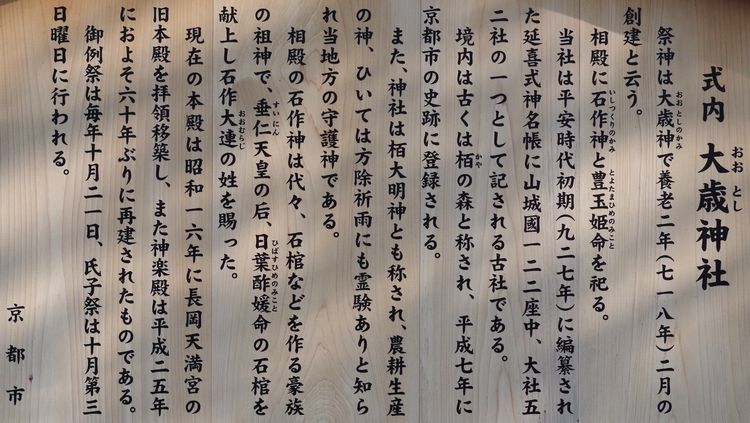 式内 大歳神社
おおとし
祭神は大歳神で養老二年(七一八年)二月の
おおとしのかみ
創建と云う。
相殿に石作神と豊玉姫命を祀る。
いしつくりのかみ とよたまひめのみこと
当社は平安時代初期(九二七年)に編纂され
た延喜式神名帳に山城國一二二座中、大社五
二社の一つとして記される古社である。
境内は古くは栢の森と称され、平成七年に
かや
京都市の史跡に登録される。
また、神社は栢大明神とも称され、農耕生産
の神、ひいては方除祈雨にも霊験ありと知ら
れ当地方の守護神である。
相殿の石作神は代々、石棺などを作る豪族
の祖神で、垂仁天皇の后、日葉酢媛命の石棺を
すいにん ひばすひめのみこと
献上し石作大連の姓を賜った。
おおむらじ
現在の本殿は昭和一六年に長岡天満宮の
旧本殿を拝領移築し、また神楽殿は平成二五年
におよそ六十年ぶりに再建されたものである。
御例祭は毎年十月二一日、氏子祭は十月第三
日曜日に行われる。
京都市